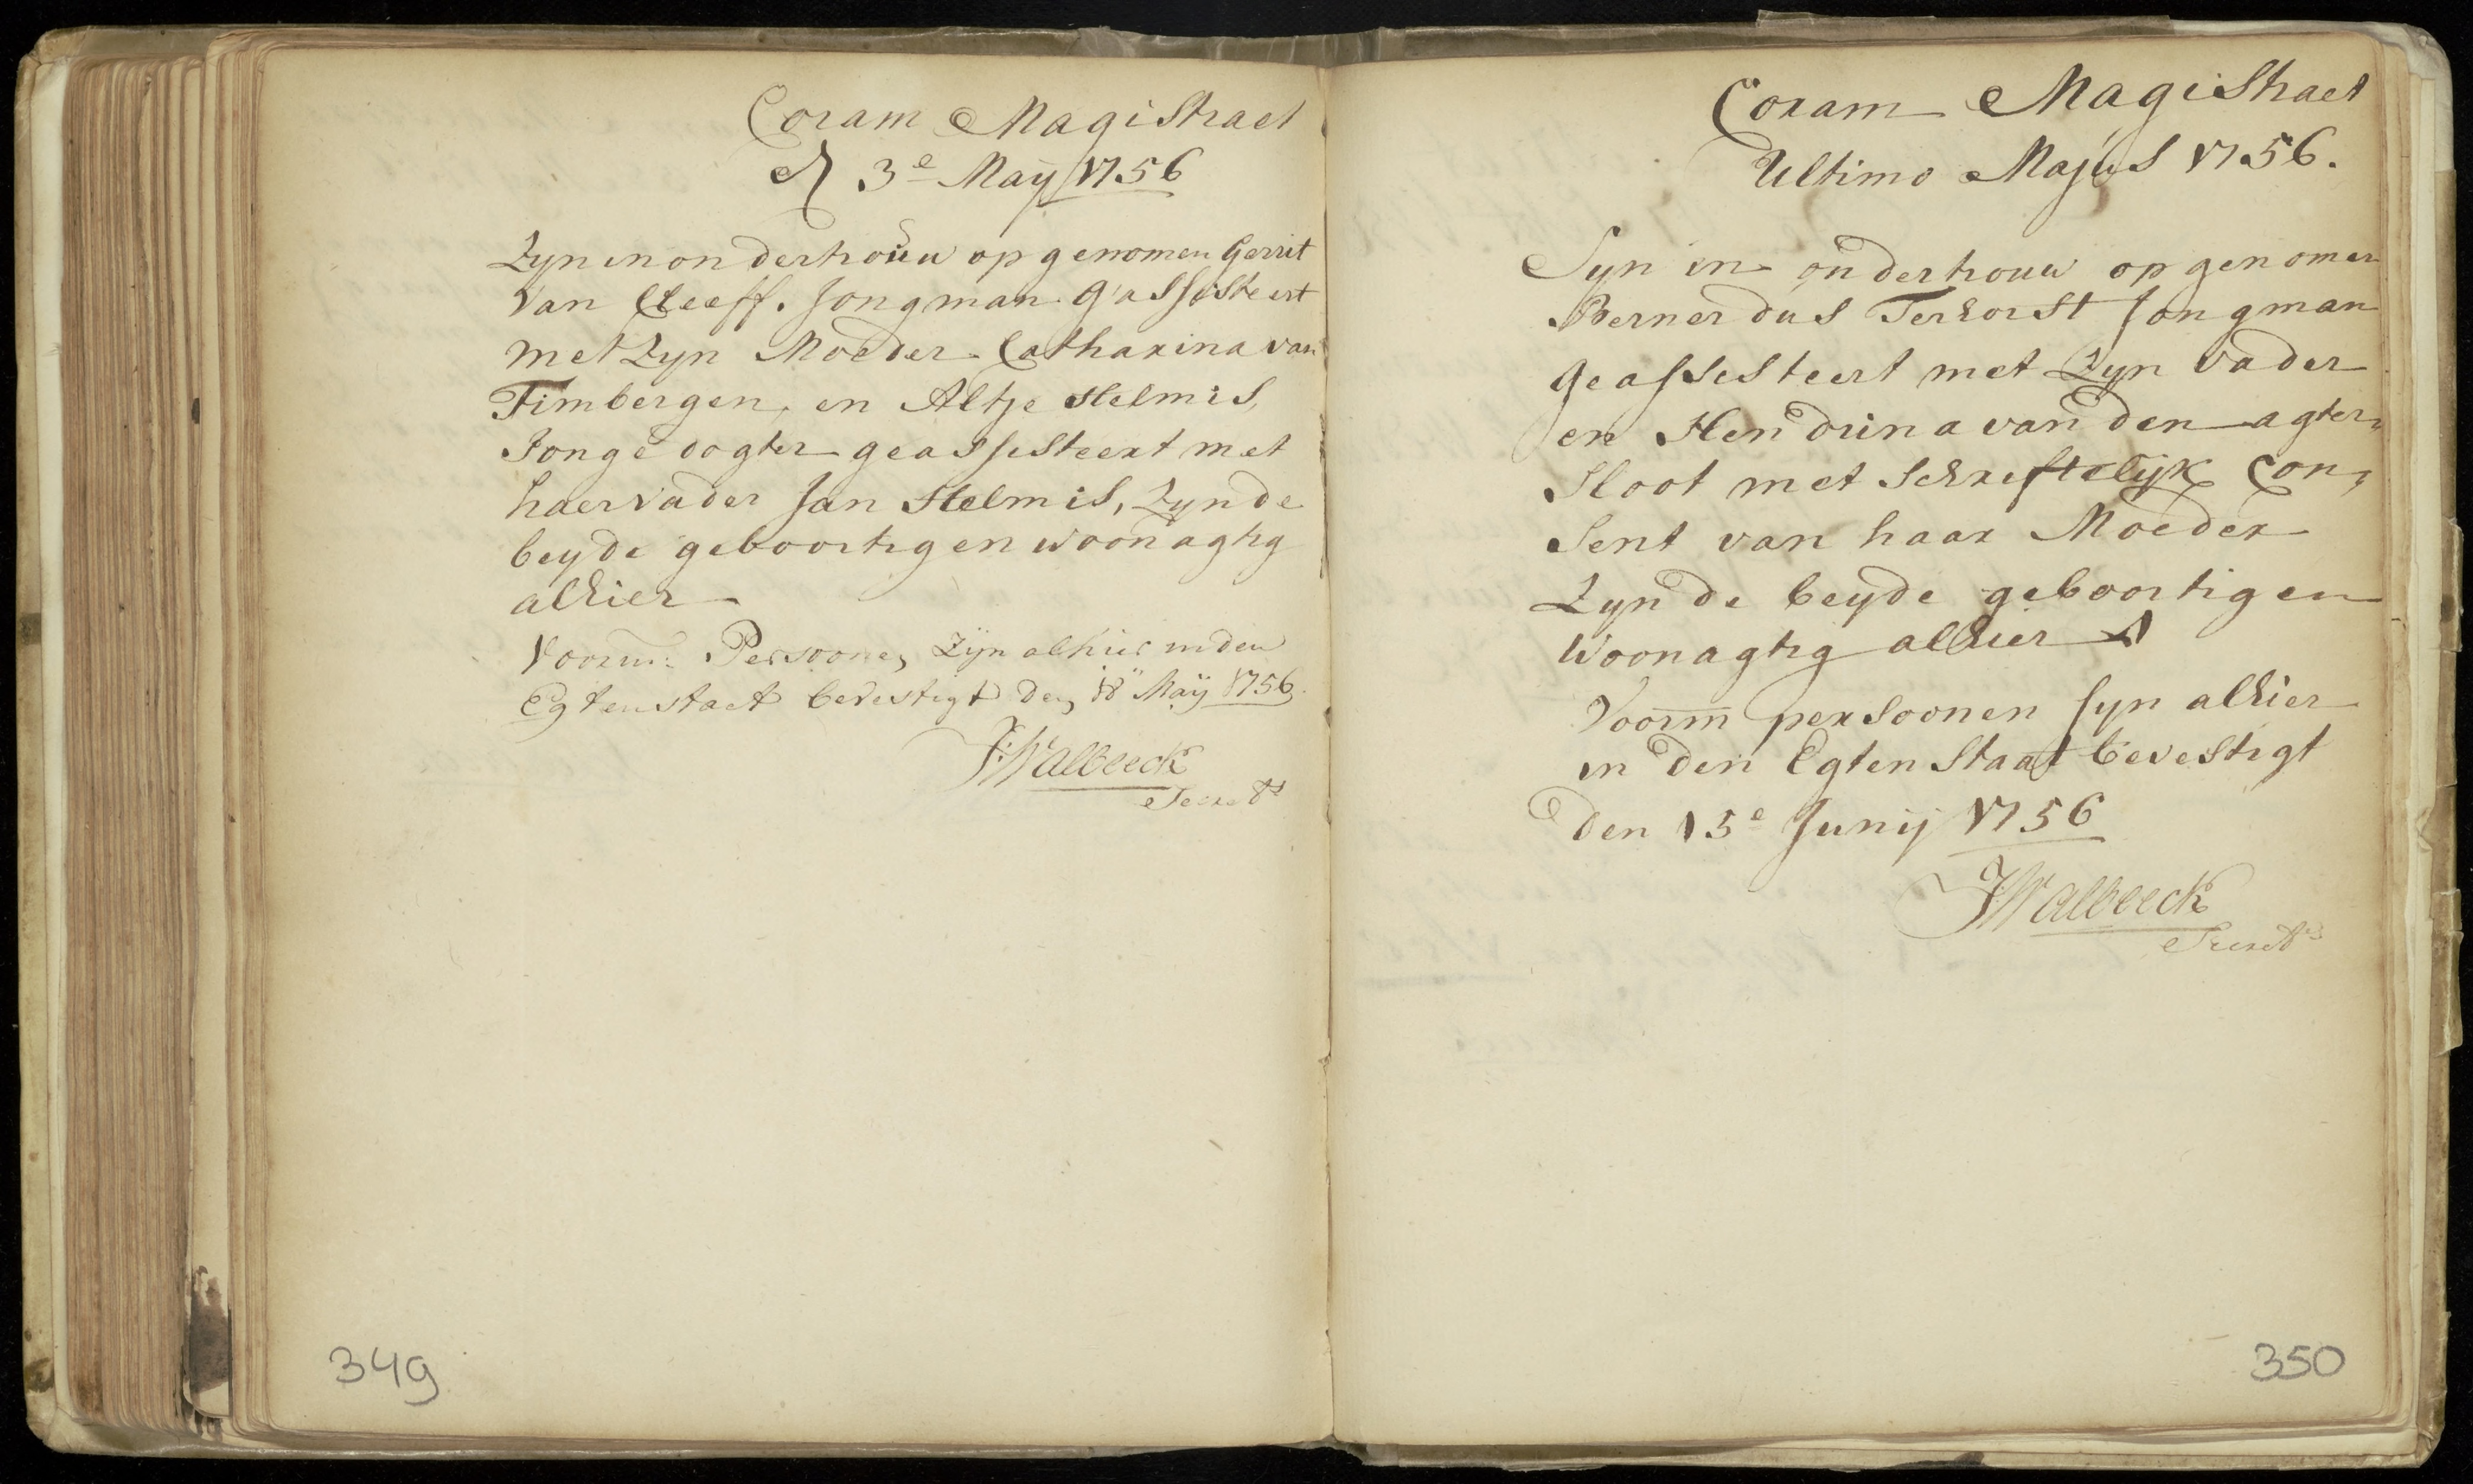 Coram Magistraet
d 3e Maij 1756
Zyn in onderhouw op genomen Gerrit
van Cleeff. Jongman. g'assisteert
met Zyn Moeder Catharina van
Timbergen, en Altje Helmis,
Jonge dogter geassisteert met
haer vader Jan Helmis, Zynde
beyde geboortig en woonagtig
alhier
Voorm: Persoonen Zijn alhier in den
Egtenstaet bevestigt den 18 Maij 1756.
J:Walbeeck
Secrets
349
Coram Magistraet
Ultimo Majus 1756.
Syn in onderhouw op genomen
Bernerdus Terhorst Jongman
geassisteert met Zyn vader
en Hendrina van den agter,
sloot met schriftelijk Con,
sent van haar Moeder
Zynde beyde geboortig en
Woonagtig alhier
Voorm persoonen syn alhier
in den Egten Staat bevestigt
den 15e Junij 1756
J:Walbeeck
Secrets
350